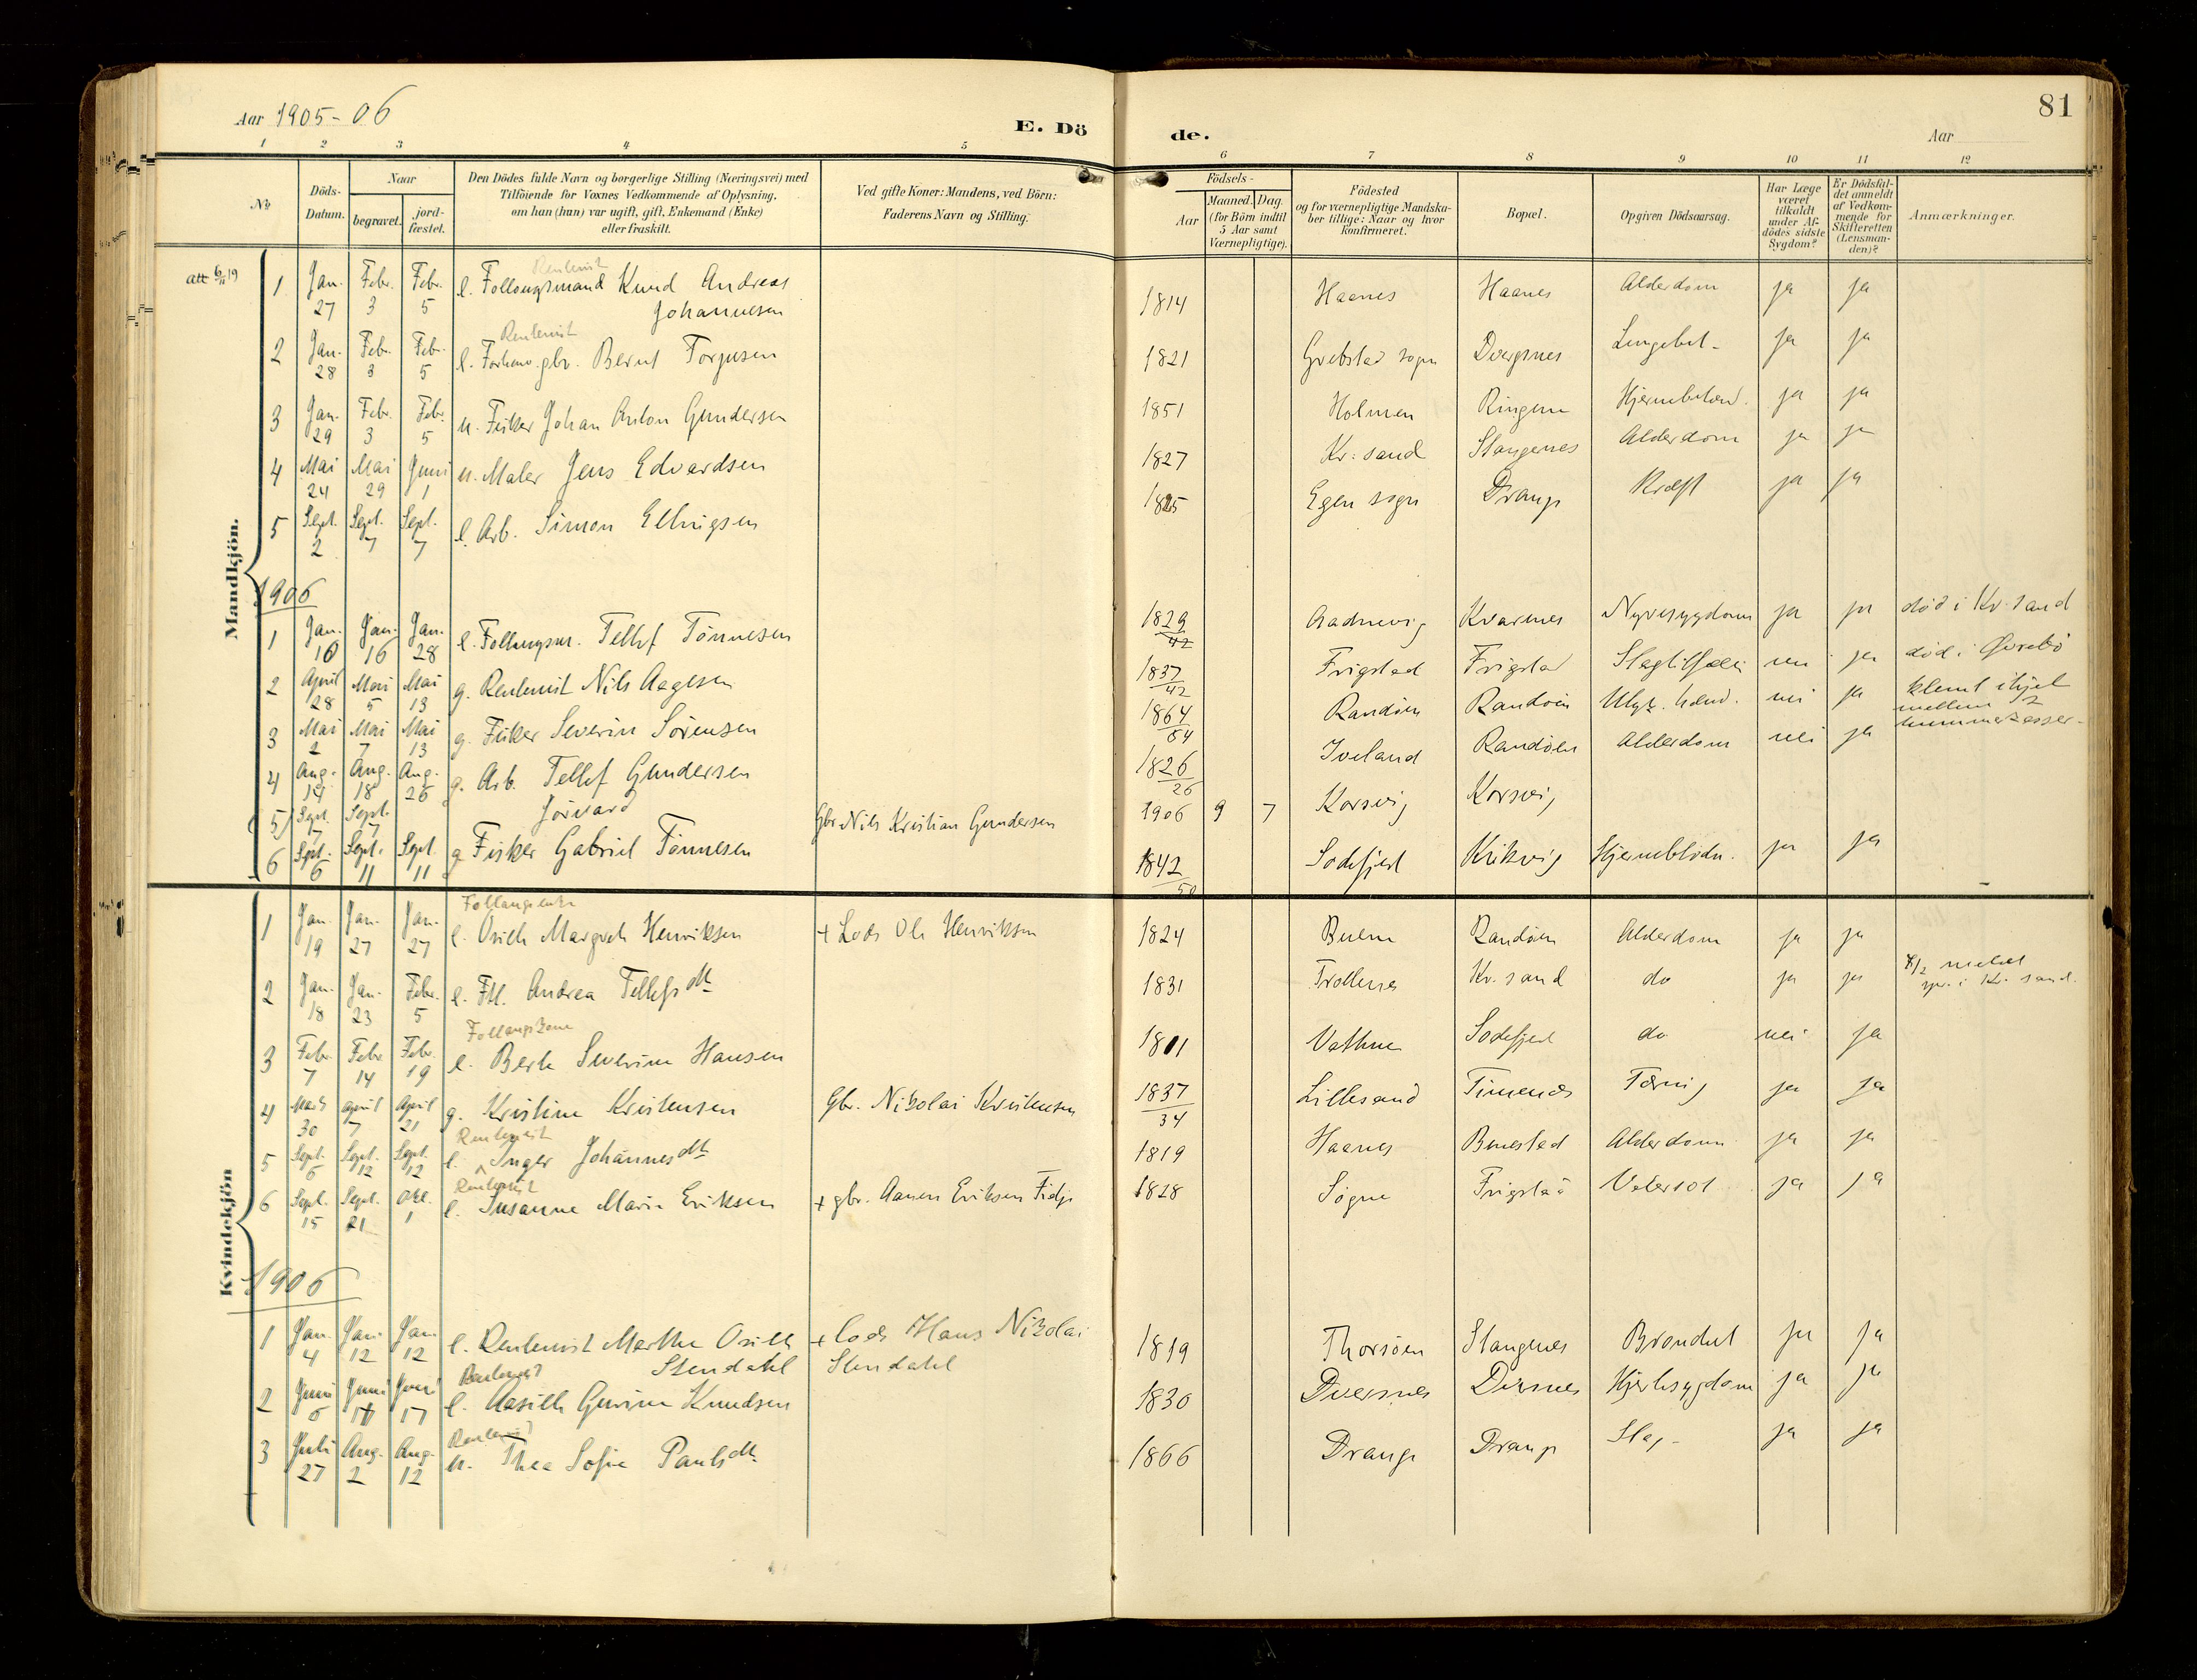 Aar 1905-06
E. Dö de.
Aar
81
1 2 3 4 5 6 7 8 9 10 11 12
No.
Döds-Datum.
Naar
begravet.
jord-fæstet.
Den Dödes fulde Navn og borgerlige Stilling (Næringsvei) med
Tilföiende for Voxnes Vedkommende af Oplysning,
om han (hun) var ugift, gift, Enkemand (Enke)
eller fraskilt.
Ved gifte Koner: Mandens, ved Börn:
Faderens Navn og Stilling.
Födsels-
Aar
Maaned. Dag.
(for Börn indtil
5 Aar samt
Værnepligtige).
Födested
og for værnepligtige Mandska-
ber tillige: Naar og hvor
Konfirmeret.
Bopæl.
Opgiven Dödsaarsag.
Har Læge
været
tilkaldt
under Af-
dödes sidste
Sygdom?
Er Dödsfal-
det anmeldt
af Vedkom-
mende for
Skifteretten
(Lensman-
den)?
Anmærkninger.
Mandkjön.
att 6/11 19
1 Jan. 27 Febr. 3 Febr. 5 Rentenist
e. Follaugsmand Knud Andreas Johannesen 1814 Haanes Haanes Alderdom ja ja
2 Jan. 28 Febr. 3 Febr. 5 Rentenist
e. Forhenv. gbr. Bernt Torjusen 1821 Grebstad sogn Dvergsnes Lungebet- ja ja
3 Jan. 29 Febr. 3 Febr. 5 u. Fisker Johan Anton Gundersen 1851 Holmen Ringene ja ja
4 Mai 24 Mai 29 Juni 1 u. Maler Jens Edvardsen 1827 Kr: sand Stangenes Alderdom ja ja
5 Sept. 2 Sept. 7 Sept. 7 e. Arb. Simon Ellingsen 1825 Egen sogn Drange Kræft ja ja
1906
1 Jan. 10 Jan. 16 Jan. 28 e. Tellef Tönnesen 1829 42 Aadnevig Kvarnes Nyresygdom ja ja död i Kr. sand
2 April 28 Mai 5 Mai 13 g. Rentenist Nils Aagesen 1837 42 Frigstad Frigstad Slagtilfælde nei ja död i Øvrebö
3 Mai 2 Mai 7 Mai 13 g. Fisker Severin Sörensen 1864 64 Randöen Randöen Ulyk. hænd. nei ja klemt ihjel mellem 2 hummerkasser-
4 Aug. 14 Aug. 18 Aug. 26 g. Arb. Tellef Gundersen 1826 26 Iveland Randöen Alderdom nei ja
(5) Sept. 7 Sept. 7 Jörvard Gbr. Nils Kristian Gundersen 1906 9 7 Korsvig Korsvig
6 Sept. 6 Sept. 11 Sept. 11 g Fisker Gabriel Tönnesen 1842 50 Sodefjed Kirkevig Hjerneblödn. ja ja
Kvindekjön
1 Jan. 19 Jan. 27 Jan. 27 Follaugsenke
e. Osille Margrete Henriksen + Lods Ole Henriksen 1824 Buene Randöen Alderdom ja ja
2 Jan. 18 Jan. 23 Febr. 5 e. Ftl. Andrea Tellefsdtr 1831 Trollenes Kr. sand do ja ja 8/2 meldt spr. i Kr. sand.
3 Febr. 7 Febr. 14 Febr. 19 Follaugskone
e. Berte Severine Hansen 1811 Vathne Sodefjed do nei ja
4 Marts 30 April 7 April 21 g. Kristine Kristensen Gbr. Nikolai Kristensen 1837 34 Lillesand Timenes Tæring ja ja
5 Sept. 6 Sept. 12 Sept. 12 Rentenist
e. Inger Johannesdtr 1819 Haanes Benestad Alderdom ja ja
6 Sept. 15 Sept. 21 Okt. 1 Rentenist
e. Susanne Marie Eriksen + gbr. Aanen Eriksen Fidje 1828 Søgne Frigstad Vatersot ja ja
1906
1 Jan. 4 Jan. 12 Jan. 12 e. Rentenist Marthe Osille Stendahl + lods Hans Nikolai Stendahl 1819 Thorsöen Stangenes ja ja
2 Juni 6 Juni 17 Rentenist
e. Aasille Gurine Knudsen 1830 Dversnes Dversnes Hjertesygdom ja ja
3 Juli 27 Aug. 2 Aug. 12 Rentenist
u. Thea Sofie Paulsdtr 1866 Drange Drange Slag- ja ja